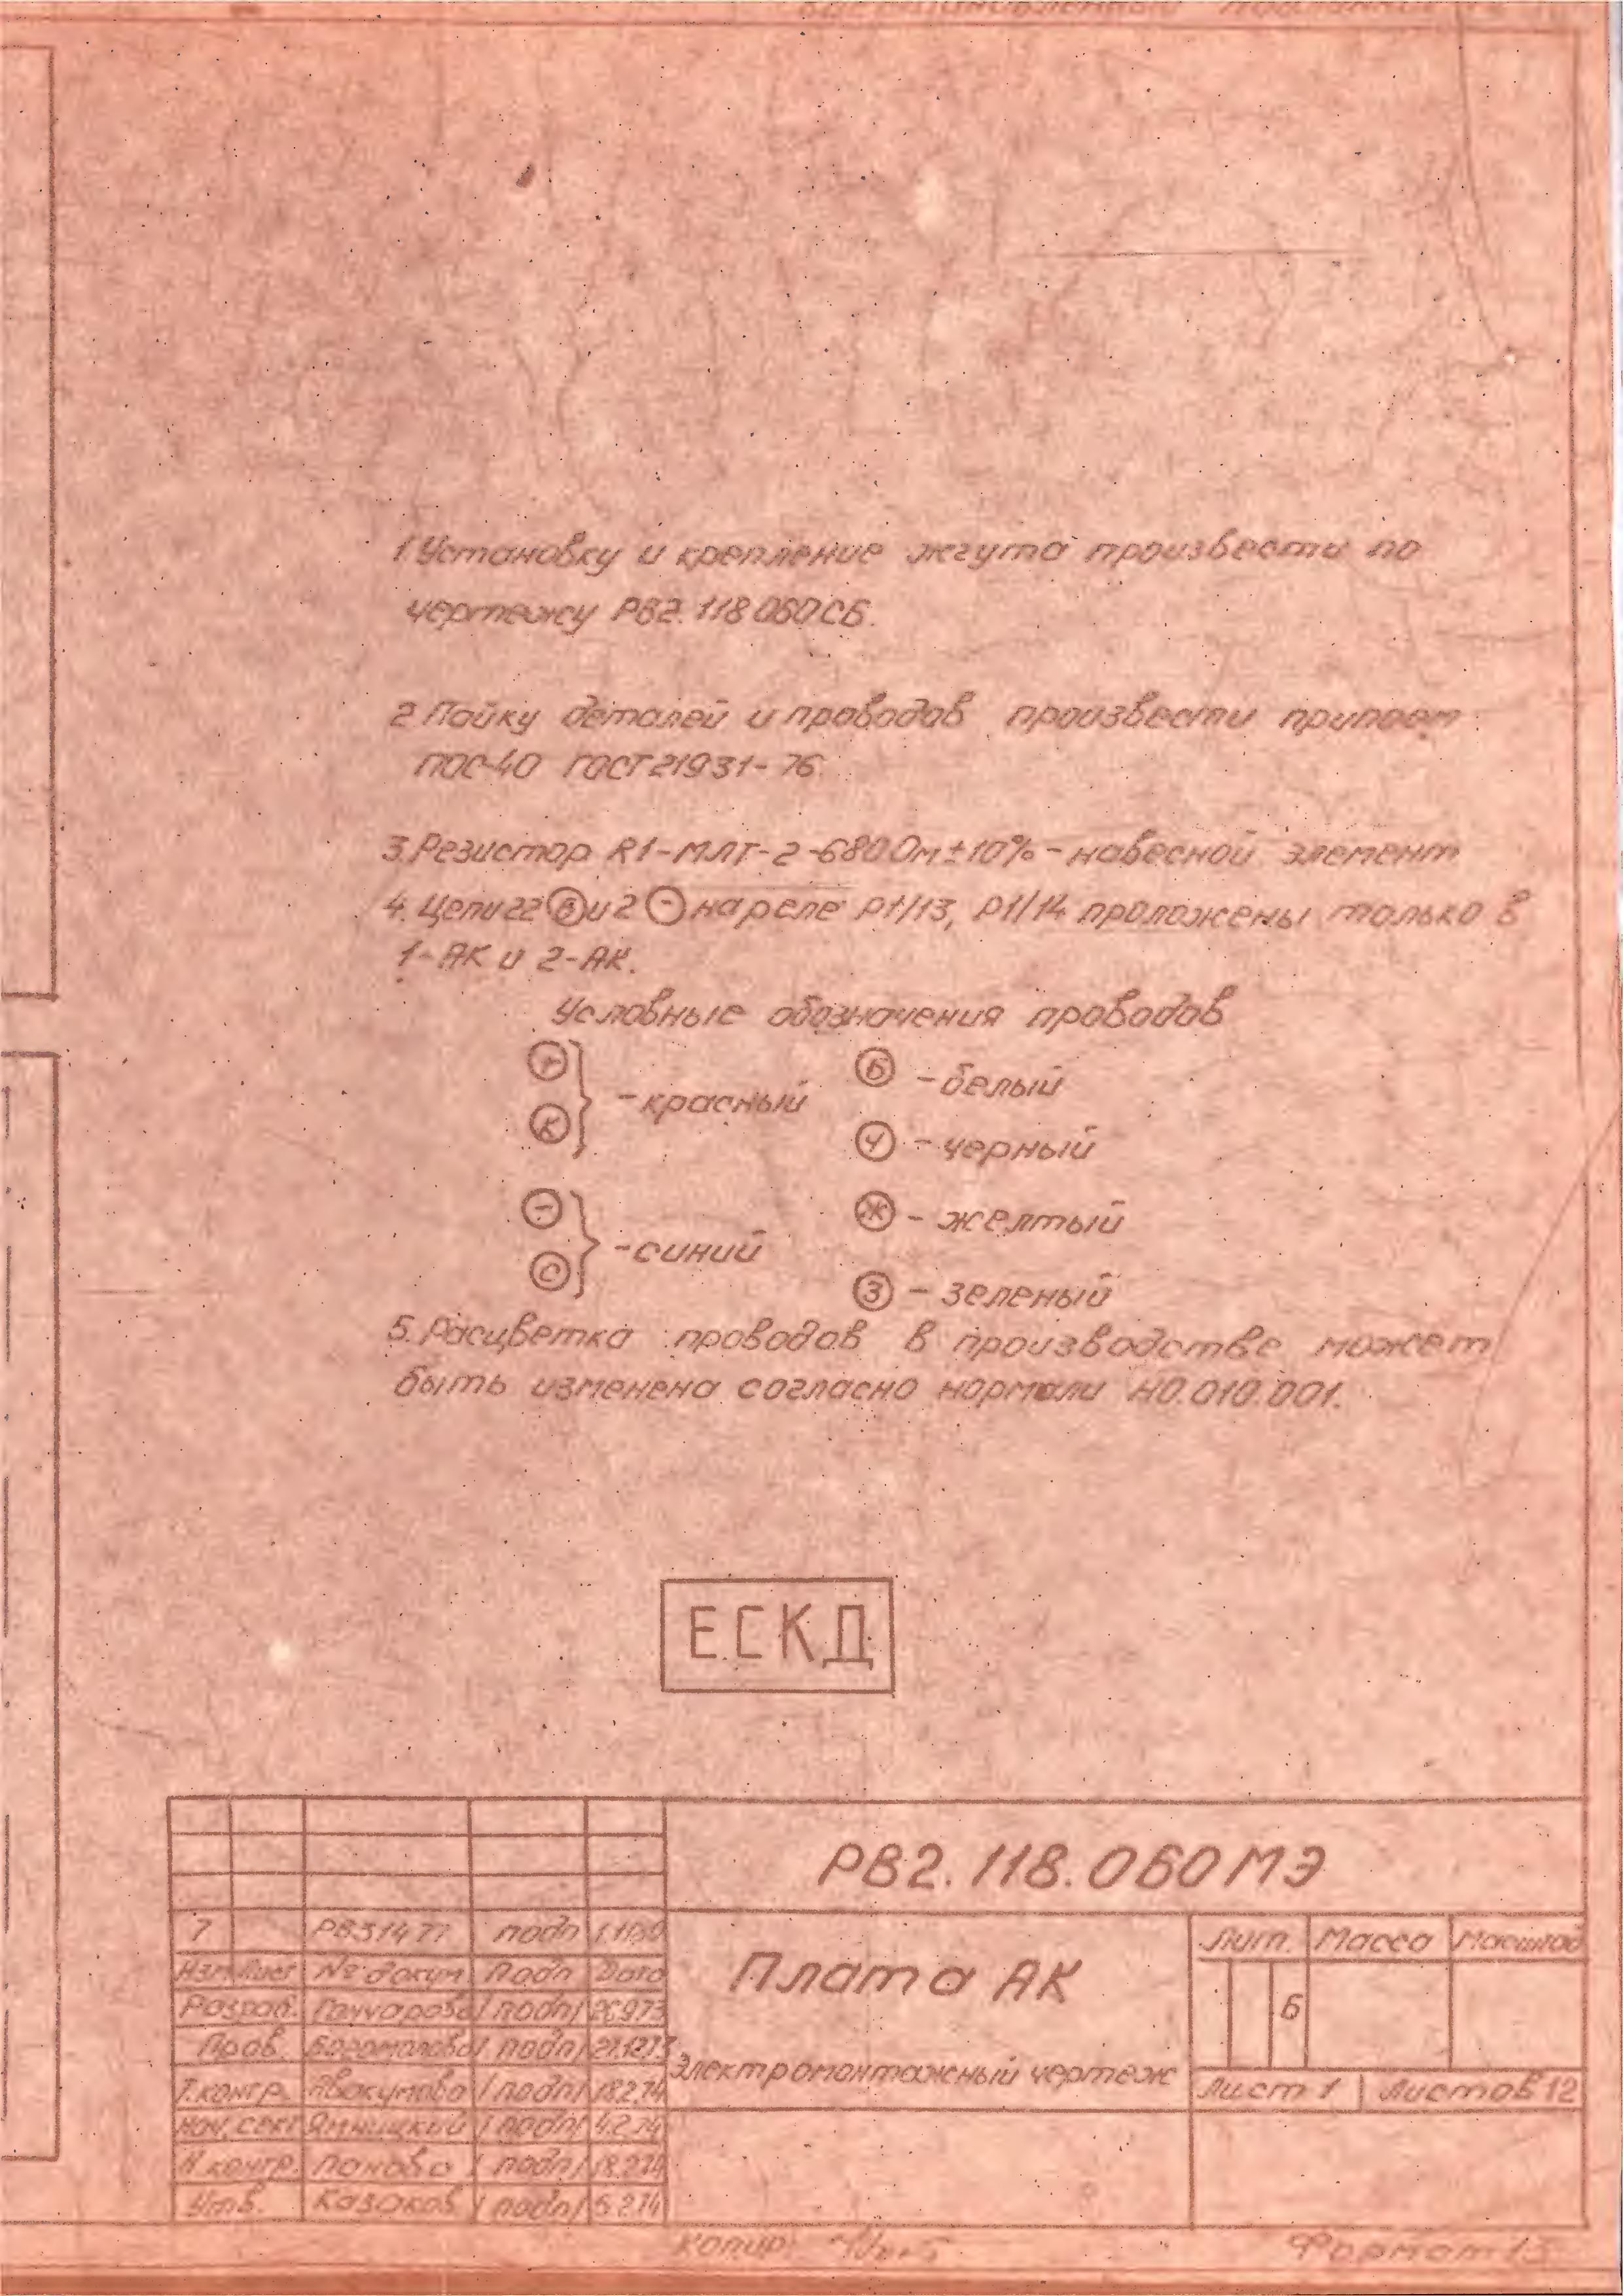 1. Установку и крепление жгута произвести по
чертежу РВ2.118.060СБ.
2. Пайку деталей и проводов произвести припоем
ПОС-40 ГОСТ 21931-76.
3. Резистор R1-МЛТ-2-680 Ом±10% - навесной элемент
4. Цепи 22 и 2 (-) на реле Р1/13, Р1/14 проложены только в
1-АК и 2-АК.
Условные обозначения проводов
(+)
(К) } - красный
(Б) - белый
(Ч) - черный
(-)
(С) } - синий
(Ж) - желтый
(З) - зеленый
5. Расцветка проводов в производстве может
быть изменена согласно нормали Н0.010.001.
Е.СКД
РВ2.118.060МЭ
7 РВ31477 подп
Изм Лист № докум Подп Дата
Разраб. Гончарова /подп/ 26.9.73
Пров. Богомолова /подп/ 27.12.73
Т.контр. Авакумова /подп/ 18.2.74
Нач. сект Ямницкий /подп/ 4.2.74
Н.контр. Панова /подп/ 18.2.74
Утв. Казаков /подп/ 5.2.74
Плата АК
Электромонтажный чертеж
Лит. Масса Масштаб
Б
Лист 1 Листов 12
Копир:
Формат